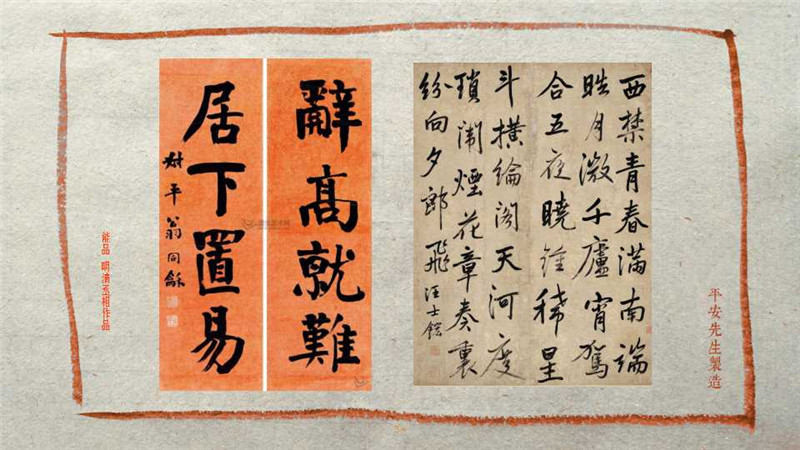 平安先生製造
西禁青春滿南端
晧月微千廬宵駕
合五夜曉鍾稀星
斗橫綸閣天河度
瑣闈煙花章奏裏
紛向夕郎飛 汪士鋐
辭高就難
居下置易
叔平翁同龢
能品 明清丞相作品